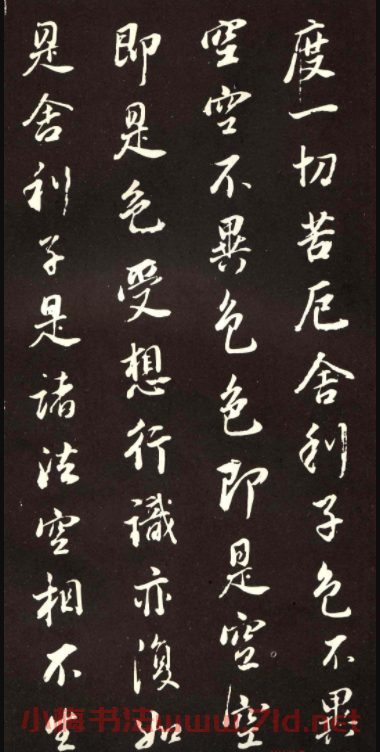 度一切苦厄舍利子色不異
空空不異色色即是空空
即是色受想行識亦復如
是舍利子是諸法空相不生
小梅书法www.7ld.net